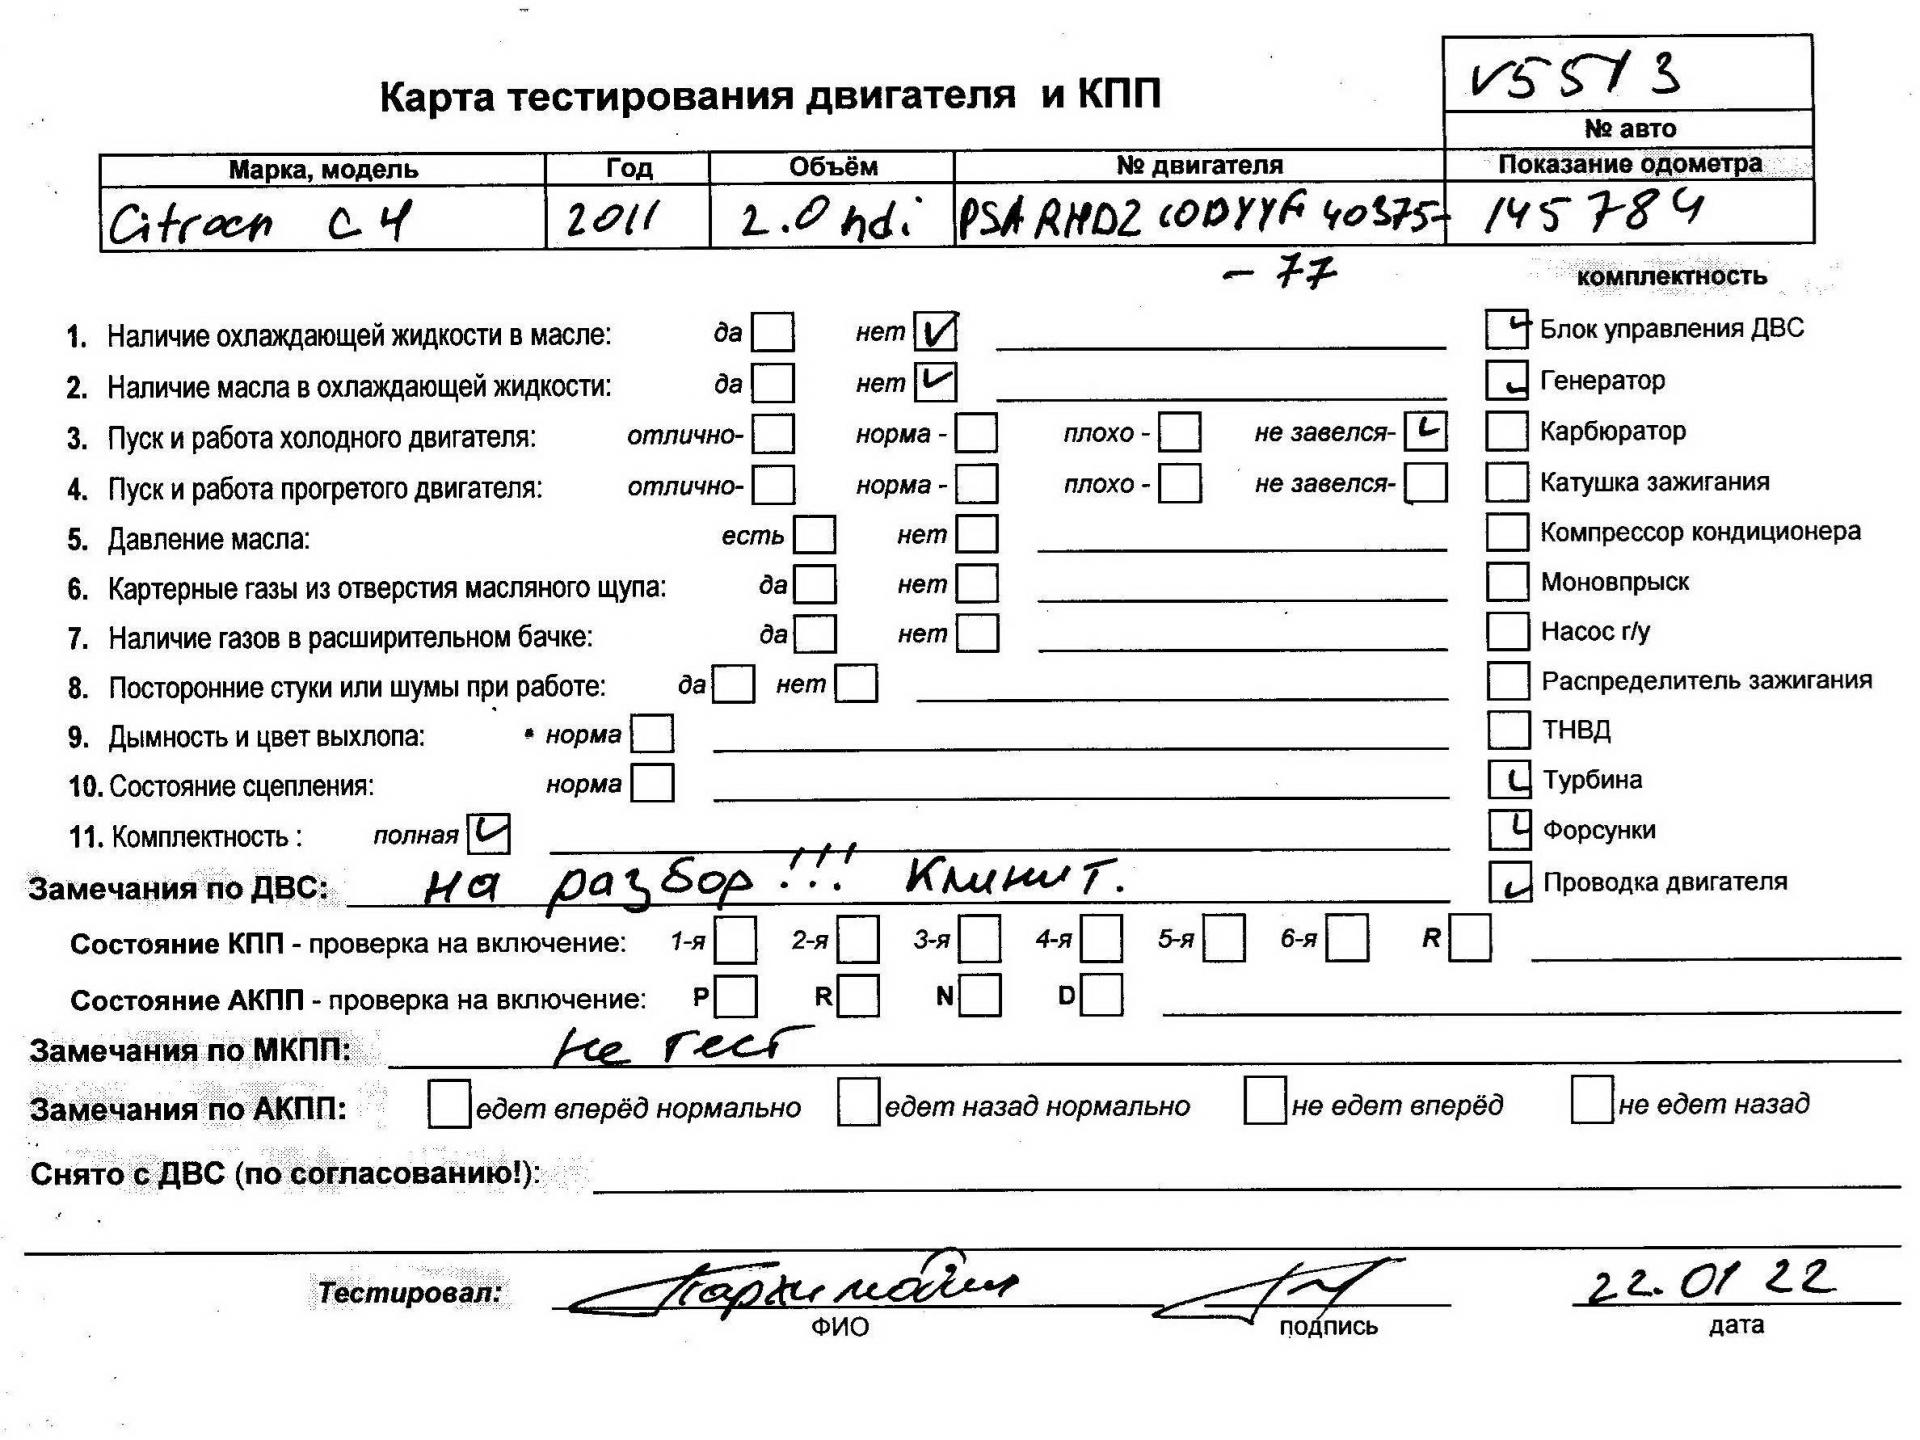 V5513
Карта тестирования двигателя и КПП
№ авто
Марка, модель Год Объём № двигателя Показание одометра
Citroen C4 2011 2.0 hdi PSA RHD2 10DYYF 40375- 145784
- 77
комплектность
1. Наличие охлаждающей жидкости в масле: да нет Блок управления ДВС
2. Наличие масла в охлаждающей жидкости: да нет Генератор
3. Пуск и работа холодного двигателя: отлично- норма - плохо - не завелся- Карбюратор
4. Пуск и работа прогретого двигателя: отлично- норма - плохо - не завелся- Катушка зажигания
5. Давление масла: есть нет Компрессор кондиционера
6. Картерные газы из отверстия масляного щупа: да нет Моновпрыск
7. Наличие газов в расширительном бачке: да нет Насос г/у
8. Посторонние стуки или шумы при работе: да нет Распределитель зажигания
9. Дымность и цвет выхлопа: норма ТНВД
10. Состояние сцепления: норма Турбина
11. Комплектность : полная Форсунки
Замечания по ДВС: на разбор!!! Клинит. Проводка двигателя
Состояние КПП - проверка на включение: 1-я 2-я 3-я 4-я 5-я 6-я R
Состояние АКПП - проверка на включение: P R N D
Замечания по МКПП: не тест
Замечания по АКПП: едет вперёд нормально едет назад нормально не едет вперёд не едет назад
Снято с ДВС (по согласованию!):
Тестировал: 22.01 22
ФИО подпись дата